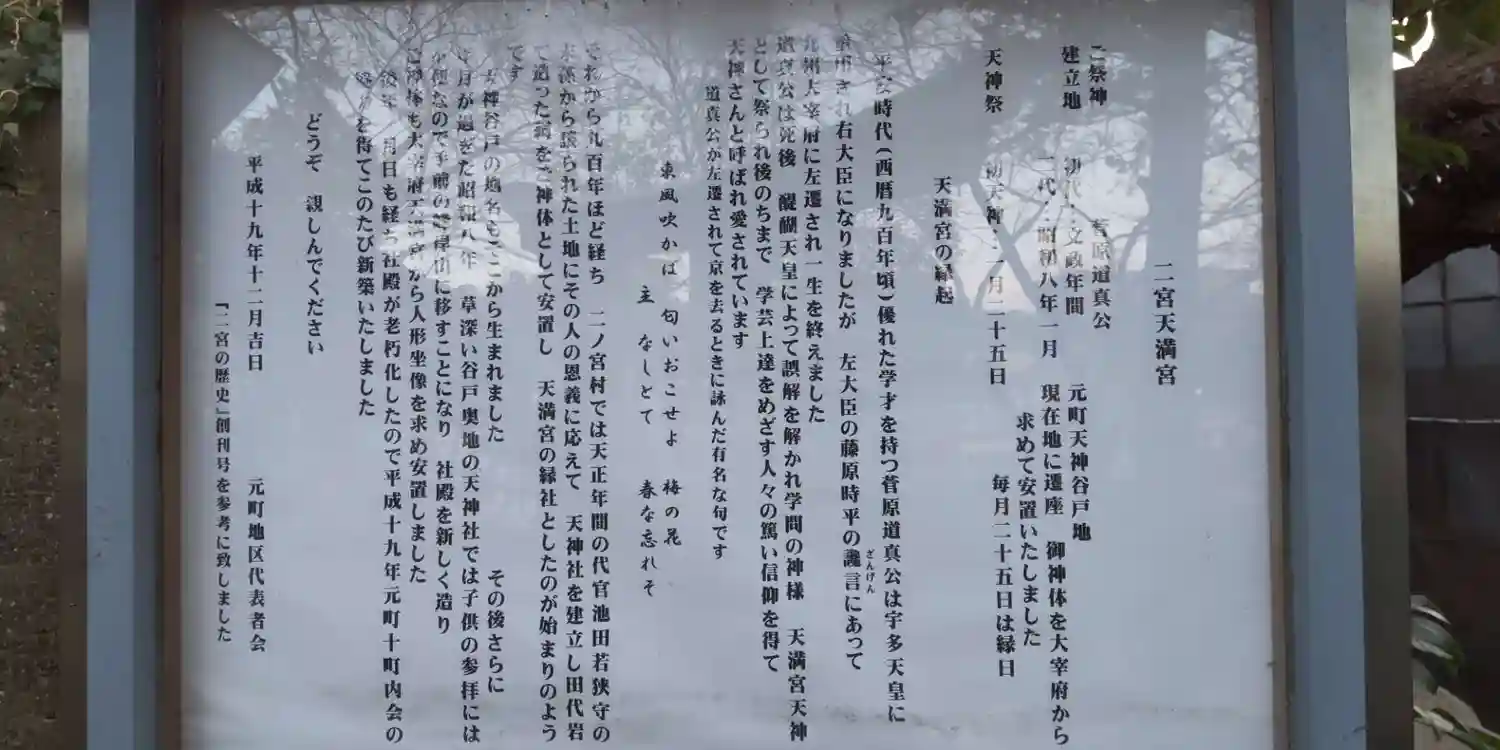 二宮天満宮
ご祭神 菅原道真公
建立地 初代・文政年間 元町天神谷戸地
二代・昭和八年一月 現在地に遷座 御神体を大宰府から
求めて安置いたしました
天神祭 初天神・一月二十五日 毎月二十五日は縁日
天満宮の縁起
平安時代(西暦九百年頃)優れた学才を持つ菅原道真公は宇多天皇に
重用され右大臣になりましたが 左大臣の藤原時平の讒言にあって
ざんげん
九州大宰府に左遷され一生を終えました
道真公は死後 醍醐天皇によって誤解を解かれ学問の神様 天満宮天神
として祭られ後のちまで 学芸上達をめざす人々の篤い信仰を得て
天神さんと呼ばれ愛されています
道真公が左遷されて京を去るときに詠んだ有名な句です
東風吹かば 匂いおこせよ 梅の花
主 なしとて 春な忘れそ
それから九百年ほど経ち 二ノ宮村では天正年間の代官池田若狭守の
末孫から譲られた土地にその人の恩義に応えて 天神社を建立し田代岩
で造った祠をご神体として安置し 天満宮の縁社としたのが始まりのよう
です
天神谷戸の地名もここから生まれました その後さらに
年月が過ぎた昭和八年 草深い谷戸奥地の天神社では子供の参拝には
なので手前の に移すことになり 社殿を新しく造り
ご神体も大宰府天満宮から人形坐像を求め安置しました
後年 月日も経ち社殿が老朽化したので平成十九年元町十町内会の
を得てこのたび新築いたしました
どうぞ 親しんでください
平成十九年十二月吉日 元町地区代表者会
「二宮の歴史」創刊号を参考に致しました